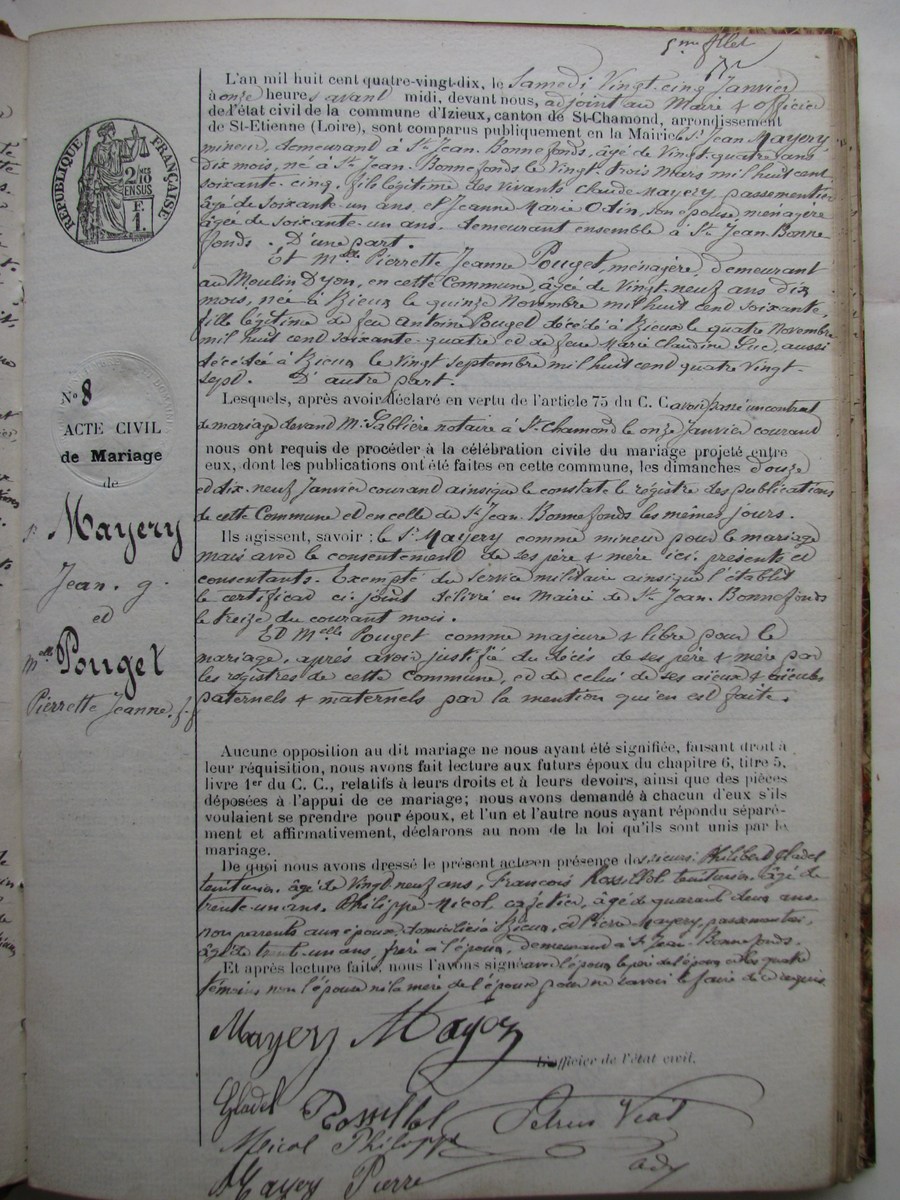 5me fllet
L'an mil huit cent quatre-vingt-dix, le Samedi Vingt-cinq Janvier
à onze heures avant midi, devant nous, adjoint au Maire & officier
de l'état civil de la commune d'Izieux, canton de St-Chamond, arrondissement
de St-Etienne (Loire), sont comparus publiquement en la Mairie le Sr Jean Mayery,
mineur, demeurant à St Jean-Bonnefonds, âgé de Vingt-quatre ans
dix mois, né à St Jean-Bonnefonds le Vingt trois Mars mil huit cent
soixante-cinq, fils légitime des vivants Claude Mayery passementier
âgé de soixante-un ans, et Jeanne Marie Odin, son épouse, ménagère
âgée de soixante-un ans. demeurant ensemble à St Jean-Bonne
fonds. D'une part.
Et Melle Pierrette Jeanne Pouget, ménagère, demeurant
au Moulin Dyon, en cette Commune, âgée de Vingt-neuf ans dix
mois, née à Izieux le quinze Novembre mil huit cent soixante,
fille légitime de feu Antoine Pouget décédé à Izieux le quatre Novembre
mil huit cent soixante-quatre et de feue Marie Claudine Luc, aussi
décédée à Izieux le Vingt Septembre mil huit cent quatre Vingt-
sept. D'autre part.
Lesquels, après avoir déclaré en vertu de l'article 75 du C. C avoir passé un contrat
de mariage devant Me Sablière notaire à St Chamond le onze Janvier courant
nous ont requis de procéder à la célébration civile du mariage projeté entre
eux, dont les publications ont été faites en cette commune, les dimanches douze
et dix-neuf Janvier courant ainsi que le constate le régistre des publications
de cette Commune et en celle de St Jean-Bonnefonds les mêmes jours.
Ils agissent, savoir : le Sr Mayery comme mineur pour le mariage
mais avec le consentement de ses père & mère ici présents et
consentants. Exempté du service militaire ainsi que l'établit
le certificat ci-joint délivré en Mairie de St Jean-Bonnefonds
le treize du courant mois.
Et Melle Pouget comme majeure & libre pour le
mariage, après avoir justifié du décès de ses père & mère par
les registres de cette commune, et de celui de ses aïeux & aïeules
paternels & maternels par la mention qu'en est faite.
Aucune opposition au dit mariage ne nous ayant été signifiée, faisant droit à
leur réquisition, nous avons fait lecture aux futurs époux du chapitre 6, titre 5,
livre 1er du C. C., relatifs à leurs droits et à leurs devoirs, ainsi que des pièces
déposées à l'appui de ce mariage; nous avons demandé à chacun d'eux s'ils
voulaient se prendre pour époux, et l'un et l'autre nous ayant répondu séparé-
ment et affirmativement, déclarons au nom de la loi qu'ils sont unis par le
mariage.
De quoi nous avons dressé le présent acte en présence des sieurs Philibert Gladel
teinturier, âgé de Vingt-neuf ans, François Rossillol teinturier, âgé de
trente-un ans. Philippe Micol cafetier, âgé de quarante deux ans
non parents aux époux, domiciliés à Izieux, et Pierre Mayery, passementier,
âgé de trente-un ans, frère à l'époux, demeurant à St Jean-Bonnefonds.
Et après lecture faite, nous l'avons signé avec l'époux, le père de l'époux et les quatre
témoins non l'épouse ni la mère de l'époux pour ne savoir le faire de ce requis.
Mayery Mayery
L'officier de l'état civil.
Gladel Rossillol Petrus Vial
Micol Philippe
adj
Mayery Pierre
RÉPUBLIQUE FRANÇAISE
2/10 EN SUS
F.
1.
No 8
ACTE CIVIL
de Mariage
de
Sr Mayery
Jean. g.
et
Melle Pouget
Pierrette Jeanne.